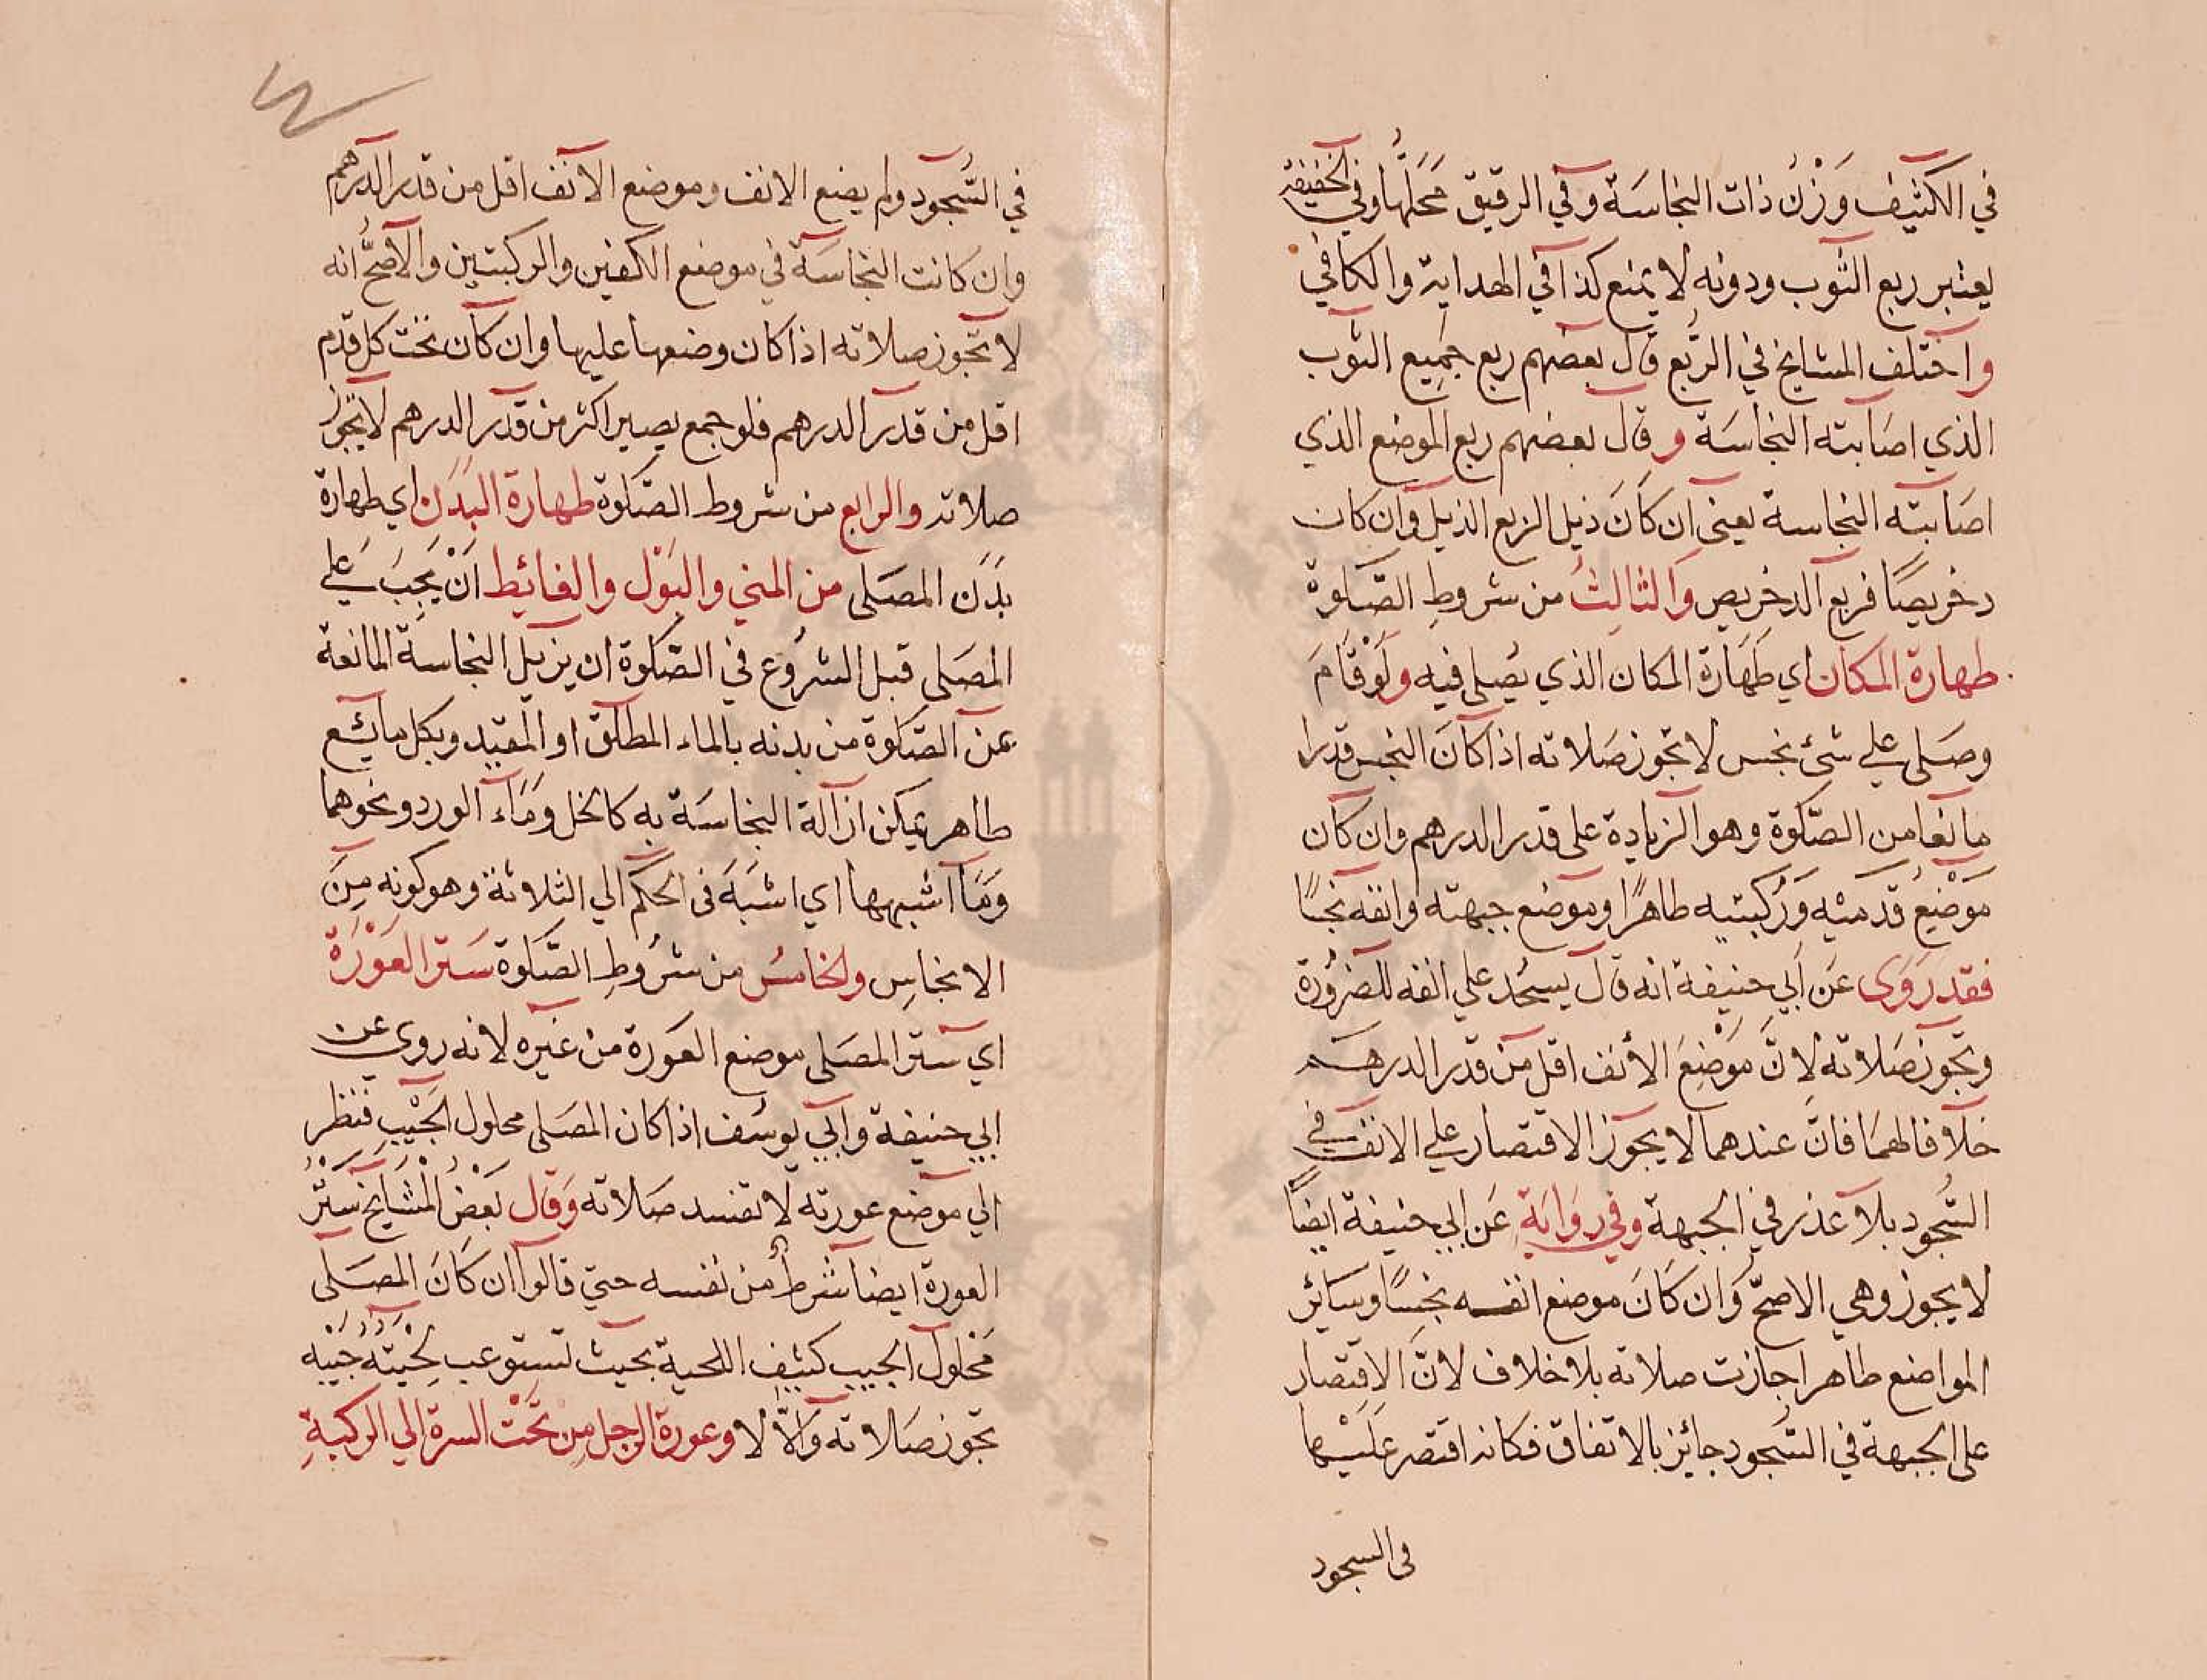 في الكثيف وَزْنُ ذات النجاسَة وفي الرقيق مَحَلّها وفي الخفيفة
يعتبر ربع الثوب ودونه لا يمنع كذا في الهداية والكافي
واختلف المشايخ في الرُّبع قال بعضهم ربع جَمِيع الثوب
الذي اصَابته النجاسَة وقال بعضهم ربع الموضع الذي
اصَابته النجاسة يعني ان كَانَ ذيل الربع الذيل وان كان
دخريصًا فربع الدخريص وَالثالِثُ من شروطِ الصَّلوة
طهارة المكان اي طَهَارَة المكان الذي يُصلي فيه ولَوْ قَامَ
وصَلى علي شئ نجس لا تجوز صَلاته اذا كانَ النجس قدرا
مانعا من الصَّلوة وهو الزيادة على قدر الدرهم وان كان
مَوْضِعُ قدمَيْه وَرُكبتيه طاهرًا وموضع جبهته وانفه نجسًا
فقد رَوَى عَن اَبي حنيفة انه قال يسجُد علي انفه للضرُورَة
وتجوز صَلاته لِانَّ مَوْضِعَ الأنف اقل من قدر الدرهم
خلافا لهمَا فانَّ عندهما لا يجوز الاقتصار علي الانف في
السُّجود بلا عذر في الجبهة وفي رِوَايَةٍ عَن ابي حنيفة ايضًا
لا يجوز وهي الاصحّ وَان كَانَ موضع انفسه نجسًا وسَائر
المواضع طاهرا جازت صلاته بلا خلاف لانَّ الاقتصار
على الجبهة في السُّجود جائز بالاتفاق فكانه اقتصر عَلَيْها
في السجود
في السُّجود ولم يضع الانف وموضع الانف اقل من قدر الدرهم
وان كانت النجاسَة في موضع الكفين والركبتين والاصحُّ انه
لا تجوز صلاته اذا كان وضعها عليها وان كان تحت كل قدم
اقل من قدر الدرهم فلو جمع يصير اكثر من قدر الدرهم لا تجوز
صلاته والرابع من شروط الصَّلوة طهارة البَدَن اي طهارة
بَدَن المصَلي من المني والبَوْل والغائِط اَنْ يَجِبَ عَلي
المصَلي قبل الشرُوع في الصَّلوة ان يزيل النجاسة المانعة
عن الصَّلوة من بدنه بالماء المطلق او المقيّد وبكل مائع
طاهر يمكن ازالة النجاسَة به كالخل ومَاء الورد ونحوهما
وَمَا اشبهها اي اشبَهَ في الحكم الي الثلاثة وهو كونه مِنَ
الانجاسِ والخامسُ من شرُوطِ الصَّلوة سَتر العَوْرَة
اي ستر المصَلي موضع العَورَة من غيره لانه روي عن
ابي حنيفة وابي يوسُف اذا كان المصَلي محلول الجَيْبِ فنظر
الي موضع عورته لا تفسد صَلاته وَقال بَعْضُ الْمَشَايِخ سَتْرُ
العورة ايضا شرط من نفسه حتي قالوا ان كَانَ المصَلى
مَحلول الجيب كثيف اللحية بحيث تستوعب لِحْيَتُه جَيْبَه
تجوز صَلاته وَالّا لا وعورة الرجل مِن تَحْت السرة الي الركبةِ